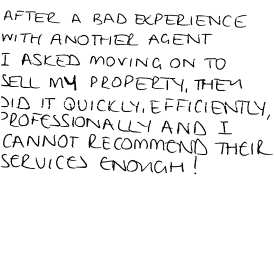 AFTER A BAD EXPERIENCE
WITH ANOTHER AGENT
I ASKED MOVING ON TO
SELL MY PROPERTY, THEY
DID IT QUICKLY, EFFICIENTLY,
PROFESSIONALLY AND I
CANNOT RECOMMEND THEIR
SERVICES ENOUGH!